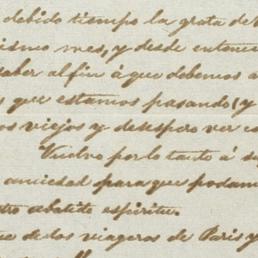 debido tiempo la grata de
mismo mes, y desde entonces
saber al fin á que debemos a
que estamos pasando (y
os viejos y desespero ver es
Vuelvo por lo tanto á su
ansiedad para que podam
tro abatido espiritu.
de los viageros de Paris y